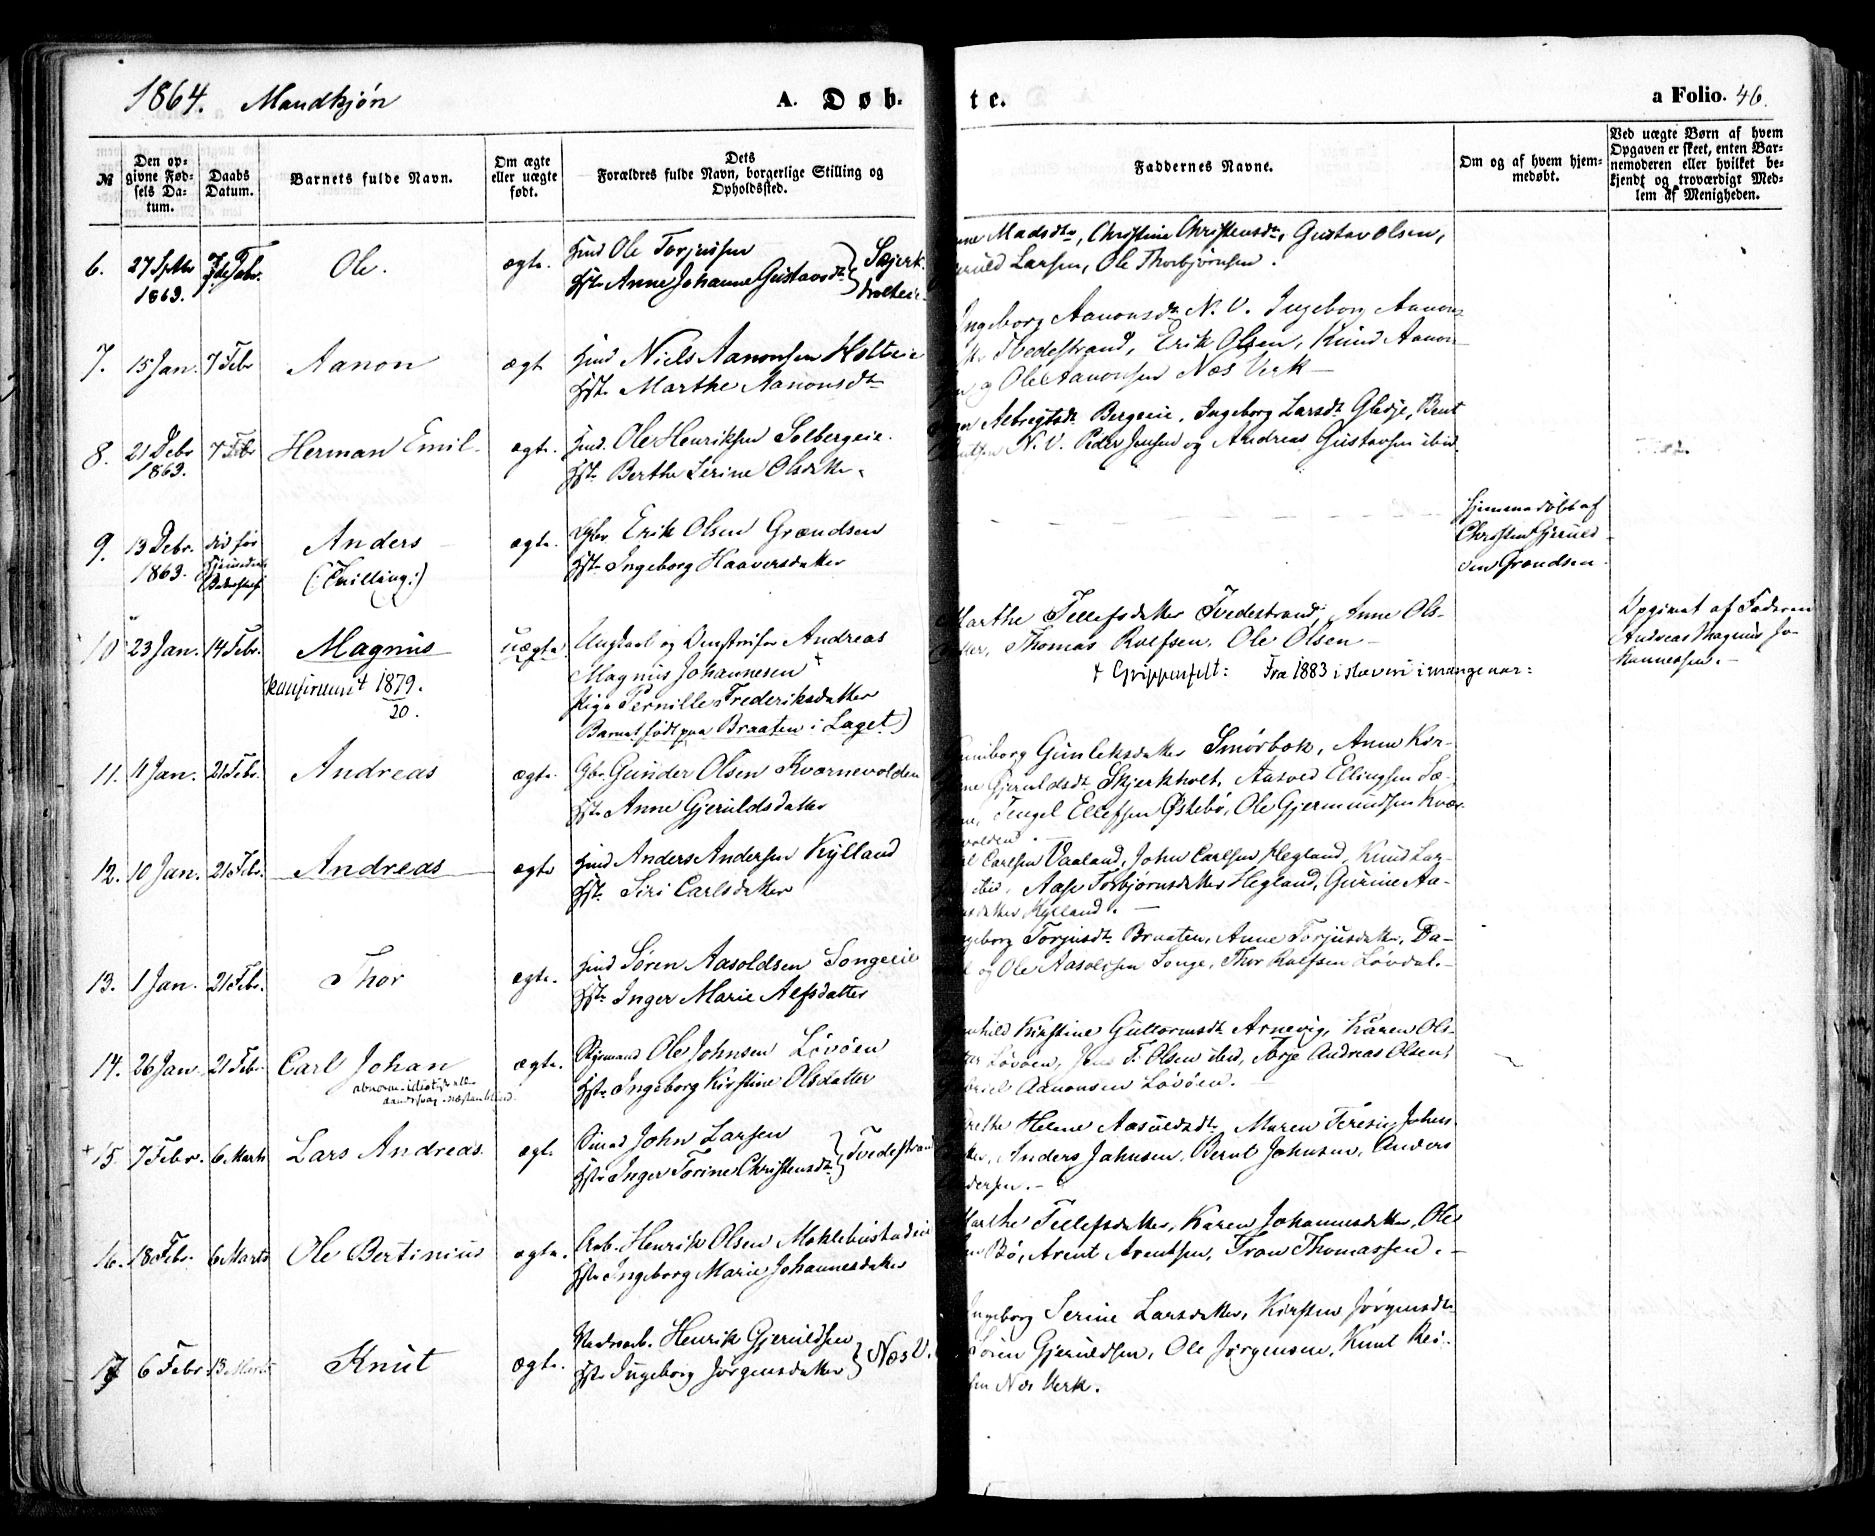 1864. Mandkjøn A. Døb- te. a Folio. 46.
№ Den op-givne Fød-sels Da-tum. Daabs Datum. Barnets fulde Navn. Om ægte eller uægte født. Dets Forældres fulde Navn, borgerlige Stilling og Opholdssted. Faddernes Navne. Om og af hvem hjem-medøbt. Ved uægte Børn af hvem Opgaven er skeet, enten Bar-nemoderen eller hvilket be-kjendt og troværdigt Med-lem af Menigheden.
6. 27 Sptbr 1863. Febr. Ole. ægte. Hmd Ole Torjussen
Hstr Anne Johanne Gustavsdtr
Madsdtr, Christine Christensdtr, Gustav Olsen,
Larsen, Ole Thorbjørnsen.
7. 15 Jan. 7 Febr Aanon ægt Hmd Niels Aanonsen Holteie
Hstr Marthe Aanonsdtr
Ingeborg Aanonsdtr N. V. Ingeborg Aanons
Tvedestrand, Erik Olsen, Knud Aanon
og Ole Aanonsen Næs Verk
8. 21 Debr 1863. 7 Febr Herman Emil. ægte. Hmd. Ole Henriksen Solbergeie.
Hstr Berthe Serine Olsdatter.
Albregtsdtr Bergeie. Ingeborg Larsdtr Gledje, Bent
N. V. Peder Jensen og Andreas Gustavsen ibid.
9. 13 Debr. 1863. død før Anders ægte. Erik Olsen Grændsen
(: Tvilling :) Hstr Ingeborg Haaversdatter
Hjemmedøbt af
Christen Gjeruld
sen Grændsen
10 23 Jan. 14 Febr. Magnus uægte. Ungkarl og Andreas
konfirmert 1879. Magnus Johannesen +
20. Pige Pernille Frederiksdatter
Barnet født paa Braaten i Laget)
Marthe Tellefsdatter Tvedestrand, Anne Ols-
Thomas Rolfsen, Ole Olsen
+ Grippenfelt: Fra 1883 i slaveri i mange aar:
Opgivet af Faderen
Andreas Magnus Jo-
hannessen.
11. 11 Jan. 21 Febr. Andreas ægte. Gbr. Gunder Olsen Kværnevolden
Hstr Anne Gjeruldsdatter
Gunleksdatter Smørbæk, Anne Kir-
Gjeruldsdtr Skjerkholt, Aasved Ellingsen Sæ-
Tengel Ellefsen Østebø, Ole Gjermundsen Kvær
volden
12. 10 Jan. 21 Febr. Andreas ægte Hmd Anders Andersen Kylland
Hstr Siri Carlsdatter
Carlsen Vaaland, John Carlsen Hegland, Knud Lar-
ibid, Aase Torbjørnsdatter Hegland, Gurine Aa-
datter Kylland.
13. 1 Jan. 21 Febr. Thor ægte. Hmd Søren Aasoldsen Songeeie
Hstr Inger Marie Alfsdatter
Torjusdtr Braaten, Anne Torjusdatter, Da-
og Ole Aasoldsen Songe, Thor Rolfsen Løvdal.
14. 26 Jan. 21 Febr. Carl Johan ægte. Styrmand Ole Johnsen Løvøen
Hstr Ingeborg Kirstine Olsdatter
Kirstine Guttormsdtr Arnevig, Karen Ols-
Løvøen, Jens T. Olsen ibid, Terje Andreas Olsen,
Aanonsen Løvøen.
15. 7 Febr. 6 Marts Lars Andreas. ægt. John Larsen
Hstr Inger Torine Christensdtr Tvedestrand
Helene Aasoldsdtr Maren Teresie Johns
Anders Johnsen, Bernt Johnsen, Anders
dersen.
16. 18 Febr. 6 Marts Ole Bertinius ægte. Arb. Henrik Olsen Moklebustadeie
Hstr Ingeborg Marie Johannesdatter
Marthe Tellefsdatter, Karen Johannesdatter, Ole
Bø, Arent Arentsen, Tron Thomassen.
17 6 Febr. 13 Marts Knut ægte. Henrik Gjeruldsen
Hstr Ingeborg Jørgensdatter Næs V.
Ingeborg Serine Larsdatter, Kirsten Jørgensdtr
Søren Gjeruldsen, Ole Jørgensen, Knut
Næs Verk.